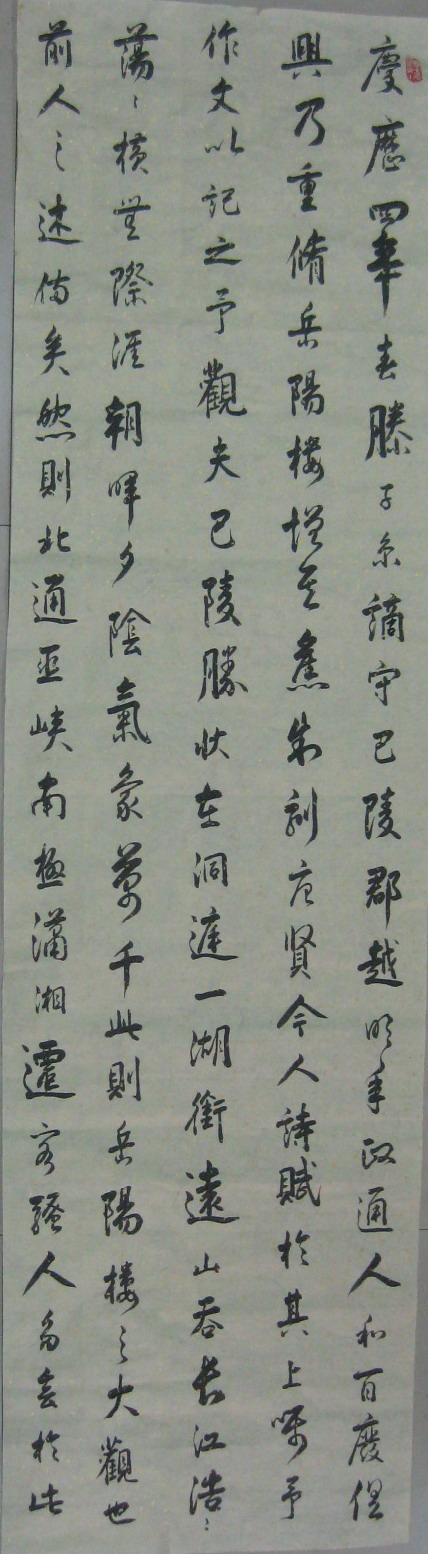 慶歷四年春滕子京謫守巴陵郡越明年政通人和百廢俱
興乃重脩岳陽樓增其舊制刻唐賢今人詩賦於其上囑予
作文以記之予觀夫巴陵勝狀在洞庭一湖銜遠山吞長江浩〻
蕩〻橫無際涯朝暉夕陰氣象萬千此則岳陽樓之大觀也
前人之述備矣然則北通巫峽南極瀟湘遷客騷人多會於此